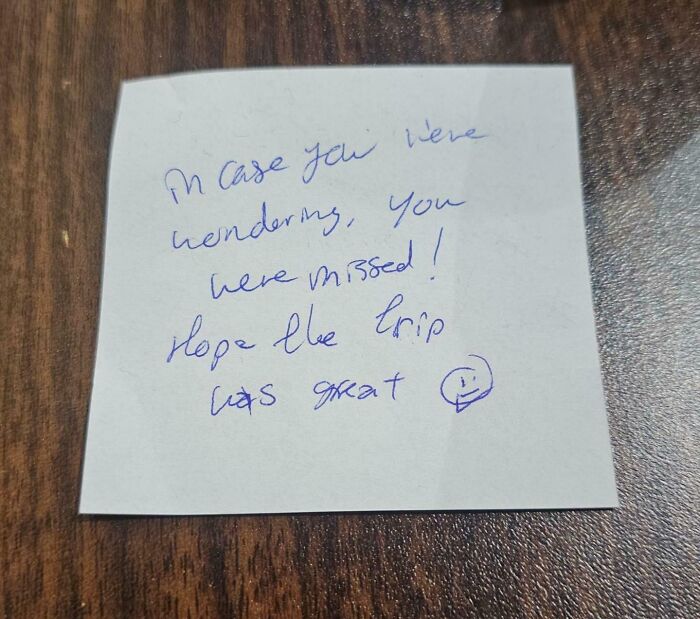 in case you were
wondering, you
were missed!
Hope the trip
was great